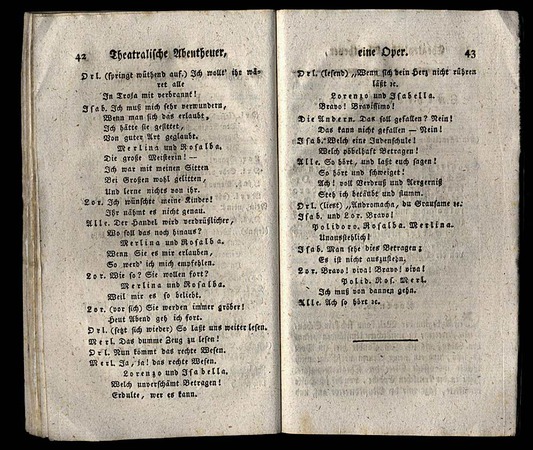 42 Theatralische Abentheuer,
Orl. (springt wüthend auf.) Ich wollt' ihr wä-
ret alle
In Troja mit verbrannt!
Isab. Ich muß mich sehr verwundern,
Wenn man sich das erlaubt,
Ich hätte sie gesittet,
Von guter Art geglaubt.
Merlina und Rosalba.
Die große Meisterin! —
Ich war mit meinen Sitten
Bei Großen wohl gelitten,
Und lerne nichts von ihr.
Lor. Ich wünschte meine Kinder!
Ihr nähmt es nicht genau.
Alle. Der Handel wird verdrüßlicher,
Wo soll das noch hinaus?
Merlina und Rosalba.
Wenn Sie es mir erlauben,
So werd' ich mich empfehlen.
Lor. Wie so? Sie wollen fort?
Merlina und Rosalba.
Weil mir es so beliebt.
Lor. (vor sich) Sie werden immer gröber!
Heut Abend geh ich fort.
Orl. (setzt sich wieder) So laßt uns weiter lesen.
Merl. Das dumme Zeug zu lesen!
Orl. Nun kommt das rechte Wesen.
Merl. Ja, ja! das rechte Wesen.
Lorenzo und Isabella.
Welch unverschämt Betragen!
Erdulte, wer es kann.
eine Oper. 43
Orl. (lesend) „Wenn sich dein Herz nicht rühren
läßt ꝛc.
Lorenzo und Isabella.
Bravo! Bravissimo!
Die Andern. Das soll gefallen? Nein!
Das kann nicht gefallen — Nein!
Isab. Welch eine Judenschule!
Welch pöbelhaft Betragen!
Alle. So hört, und laßt euch sagen!
So hört und schweiget!
Ach! voll Verdruß und Aergerniß
Steh ich betäubt und stumm.
Orl. (liest) „Andromacha, du Grausame ꝛc.
Isab. und Lor. Bravo!
Polidoro. Rosalba. Merlina.
Unausstehlich!
Isab. Man sehe dies Betragen;
Es ist nicht auszustehn,
Lor. Bravo! viva! Bravo! viva!
Polid. Ros. Merl.
Ich muß von dannen gehn.
Alle. Ach so hört ꝛc.